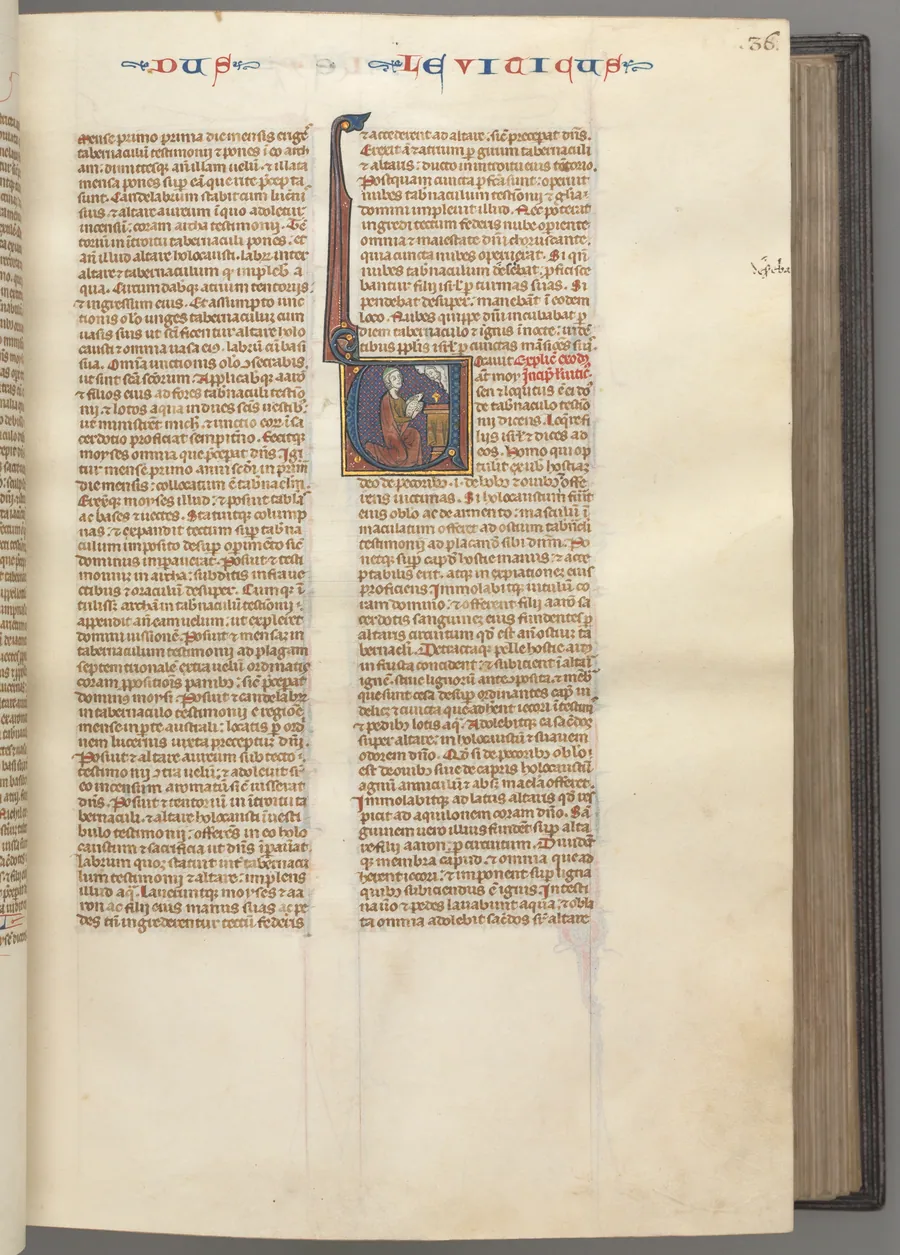 36.
DUS LEVITICUS
mense primo prima die mensis eriges
tabernaculū testimonii ⁊ pones ī eo arch
am: dimittesqꝫ añ illam uelū. ⁊ illata
mensa pones sup̄ eā que rite p̄cepta
sunt. Candelabrum stabit cum lucerni
suis ⁊ altare aureum ī quo adoletur
incensū: coram archa testimonii. Tē
toriū in ītroitu tabernaculi pones. et
añ illud altare holocausti. labrꝫ inter
altare ⁊ tabernaculum qꝫ implebis a
qua. Circumdabqꝫ atrium tentoriis
⁊ ingressum eius. Et assumpto unc
tionis oleo unges tabernaculum cum
uasis suis ut sc̄ificentur altare holo
causti ⁊ omnia uasa eiꝰ. labrū cū basi
sua. Omīa unctionis oleo ꝯsecrabis.
ut sint sc̄a sc̄orum. Applicabqꝫ aarō
⁊ filios eius ad fores tabernaculi testīo
nii. ⁊ lotos aqua indues sc̄is uestibꝫ.
ut ministrēt mich̄. ⁊ unctio eorꝫ ī sa
cerdotio proficiat sempitīno. Fecitqꝫ
moyses omnia que p̄cepat dn̄s. Igi
tur mense primo anni sc̄di in prim
die mensis: collocatum ē tabn̄aclm̄.
Erexitqꝫ moyses illud: ⁊ posuit tablas
ac bases ⁊ uectes. Statuitqꝫ columpn
nas: ⁊ expandit tectum sup̄ tabna
culum imposito desup̄ opimēto sic
dominus imperauerat. Posuit ⁊ testi
monium in archa: subditis infra uec
ctibus ⁊ oraculū desuper. Cumqꝫ ī
tulissꝫ archā in tabnaculū testimonii:
appendit añ eam uelum: ut expleret
domini iussionē. Posuit ⁊ mensaꝫ in
tabernaculum testimonii ad plagam
septemtrionalē extra uelū ordinatis
coram ꝓpositiōis panibꝫ: sic̄ p̄cepat
dominus moysi. Posuit ⁊ candelabrꝫ
in tabernaculo testimonii e regiōe
mense in pte australi: locatis ꝑ ordi
nem lucernis iuxta preceptum dn̄i.
Posuit ⁊ altare aureum sub tecto
testimonii ꝯtra uelū: ⁊ adoleuit sꝫ
eo incensum aromatū sic̄ iusserat
dn̄s. Posuit ⁊ tentoriū in ītroitu ta
bernaculi. ⁊ altare holocausti ī uesti
bulo testimonii: offerēs in eo holo
caustum ⁊ sacrificia ut dn̄s īpauāt.
Labrum quoqꝫ statuit int̄ tabernacu
lum testimonii ⁊ altare: implens
illud aq̄. Laueruntqꝫ moyses ⁊ aa
ron ac filii eius manus suas ac pe
des cū ingrederentur tectū federis
⁊ accederent ad altare. sic̄ precepat dn̄s.
Erexit ⁊ atrium ꝑ girum tabernaculi
⁊ altaris: ducto in introitu eius tētorio.
Postquam cuncta ꝑfc̄a sunt: operuit
nubes tabnaculum testīonii ⁊ gloria
domini impleuit illud. Nec poterat
ingredi tectum federis nube operiente
omnia ⁊ maiestate dn̄i choruscante.
quia cuncta nubes operuerat. Si qn̄
nubes tabn̄aculum deserebat. ꝓficisce
bantur filii isrl̄ ꝑ turmas suas. Si
pendebat desuper. manebant ī eodem
loco. Nubes quippe dn̄i incubabat ꝑ
diem tabernaculo ⁊ ignis ī nocte: uidē
tibus pplīs isrl̄ ꝑ cunctas mansiōes suas.
Uocauit Explic̄ exodꝫ
aūt moy Incip̄ leuitic
sen ⁊ locutus ē ei dn̄s
de tabnaculo testīo
nii dicens. Loqꝫre fi
liis isrl̄ ⁊ dices ad
eos. Homo qui op
tulit ex uob̄ hostiaꝫ
deo de pecoribꝫ. i. de bobꝫ ⁊ ouibꝫ offe
rens uictimas. Si holocaustum fuīt
eius oblō ac de armento: masculū ī
maculatum offeret ad ostium tabn̄cli
testimonii ad placandū sibi dn̄m. Po
netqꝫ sup̄ capđ hostie manus: ⁊ acce
ptabilis erit. atqꝫ in expiationeꝫ eius
proficiens. Immolabitqꝫ uitulū co
ram domino: ⁊ offerent filii aarō sa
cerdotis sanguineꝫ eius fundentes ꝑ
altaris circuitum qđ est añ ostiuꝫ ta
bernacli. Detractaqꝫ pelle hostie artꝰ
in frusta concident ⁊ subicient ī altaī
ignē. strue lignorū ante ꝯposita. ⁊ mēb̄
que sunt cesa desup̄ ordinantes cap̄ uꝫ
delicꝫ ⁊ cuncta que adherent iecori ītestinis
⁊ pedibꝫ lotis aq̄. Adolebitqꝫ ea sac̄dos
super altare: in holocaustū ⁊ suauem
odorem dn̄o. Qđ si de pecoribꝫ oblō:
est de ouibꝫ siue de capris holocaustū
agnū anniculū ⁊ absꝫ macula offeret.
Immolabitqꝫ ad latus altaris qđ res
picit ad aquilonem coram dn̄o. San
guinem uero illius fundēt sup̄ alta
re filii aaron ꝑ circuitum. Diuidēt
qꝫ membra capud. ⁊ omnia que ad
herent iecori: ⁊ imponent sup̄ ligna
quibꝫ subiciendus ē ignis. Intesti
na uō ⁊ pedes lauabunt aqua: ⁊ obla
ta omnia adolebit sac̄dos sꝫ altare